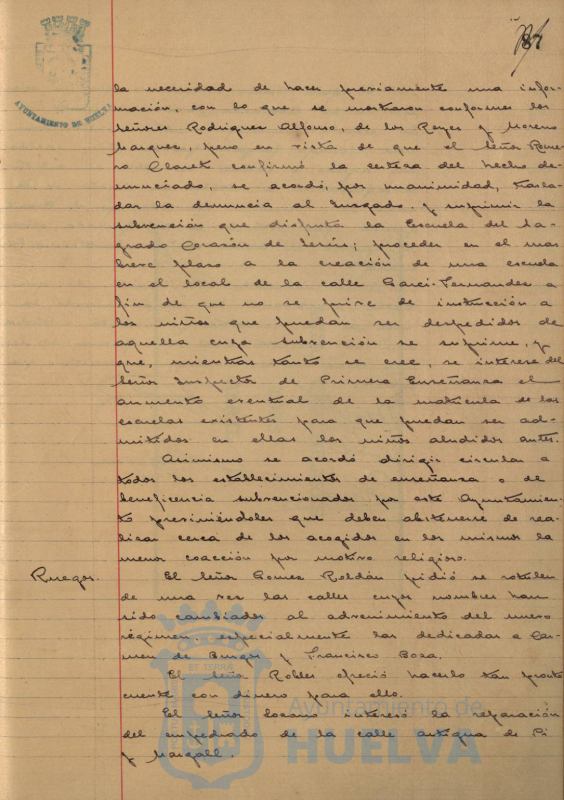 87
AYUNTAMIENTO DE HUELVA
la necesidad de hacer previamente una infor-
mación, con lo que se mostraron conformes los
señores Rodriguez Alfonso, de los Reyes y Moreno
Marquez, pero en vista de que el Señor Rome-
ro Claret confirmó la certeza del hecho de-
nunciado, se acordó, por unanimidad, trasla-
dar la denuncia al Juzgado y suprimir la
subvención que disfruta la Escuela del Sa-
grado Corazón de Jesús; proceder en el mas
breve plazo a la creación de una escuela
en el local de la calle Garci-Fernandez a
fin de que no se prive de instrucción a
los niños que puedan ser despedidos de
aquella cuya subvención se suprime, y
que, mientras tanto se cree, se interese del
Señor Inspector de Primera Enseñanza el
aumento eventual de la matricula de las
escuelas existentes para que puedan ser ad-
mitidos en ellas los niños aludidos antes.
Asimismo se acordó dirigir circular a
todos los establecimientos de enseñanza o de
beneficencia subvencionados por este Ayuntamien-
to previniéndoles que deben abstenerse de rea-
lizar cerca de los acogidos en los mismos la
menor coacción por motivo religioso.
Ruegos.
El Señor Gomez Roldán pidió se rotulen
de una vez las calles cuyos nombres han
sido cambiados al advenimiento del nuevo
régimen, especialmente las dedicadas a Car-
men de Burgos y Francisco Boza.
El Señor Robles ofreció hacerlo tan pronto
cuente con dinero para ello.
El Señor Lozano interesó la reparación
del empedrado de la calle antigua de Pi
y Margall.
Ayuntamiento de
HUELVA